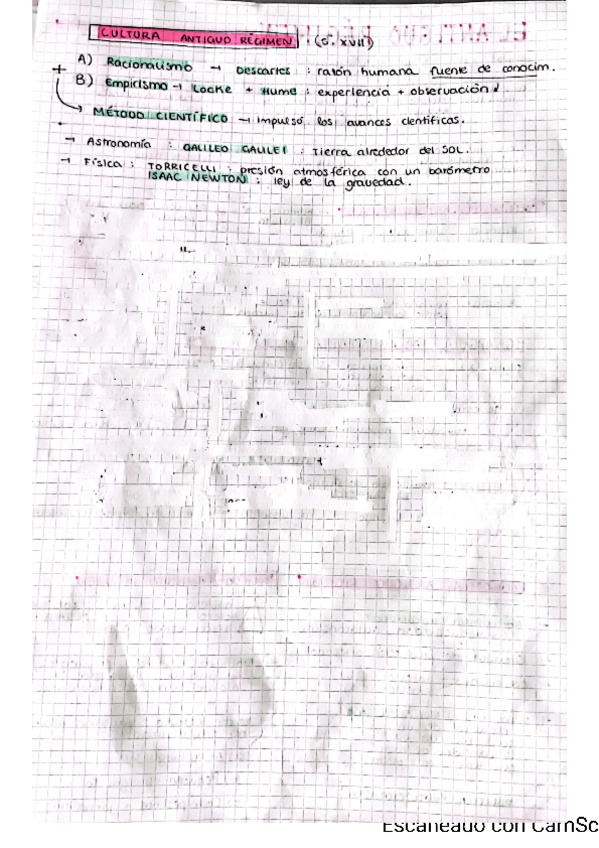 CULTURA ANTIGUO RÉGIMEN (s. XVII)
A) Racionalismo → Descartes : razón humana fuente de conocim.
+ B) Empirismo → Locke + Hume : experiencia + observación
MÉTODO CIENTÍFICO → impulsó los avances científicas.
→ Astronomía : GALILEO GALILEI : Tierra alrededor del SOL.
→ Física : TORRICELLI : presión atmosférica con un barómetro
ISAAC NEWTON : ley de la gravedad.
Escaneado con CamSc